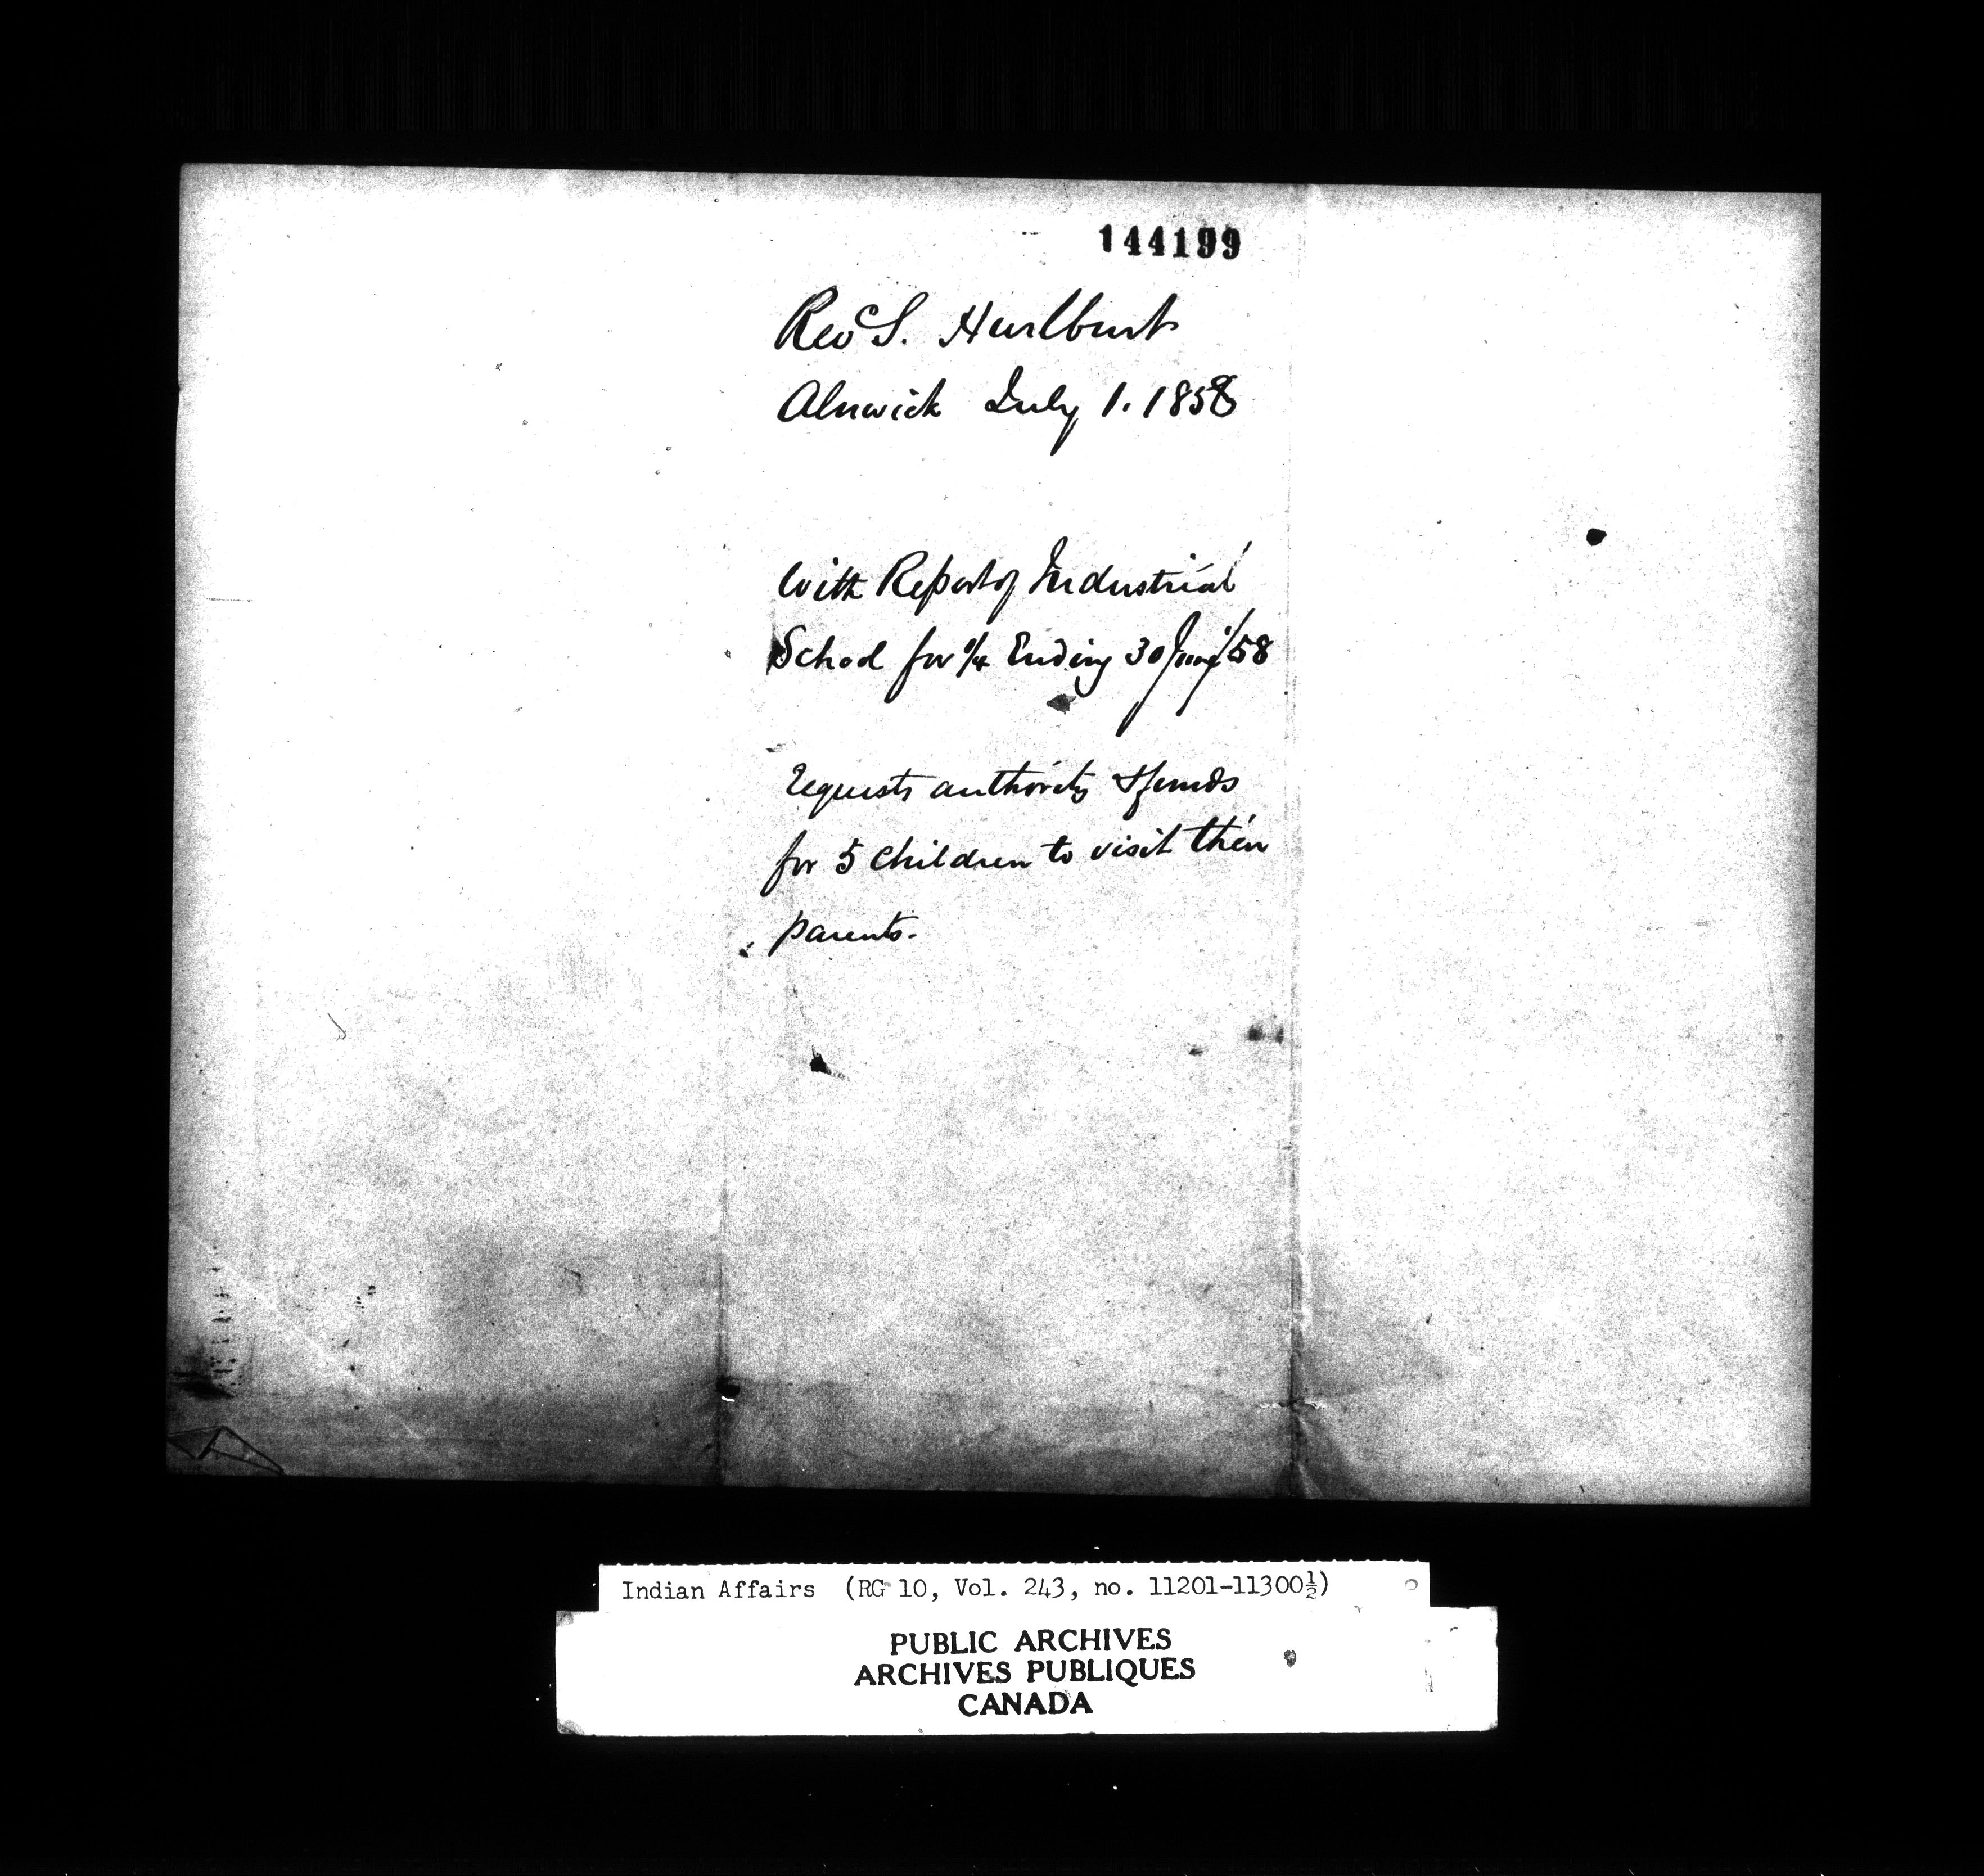 144199
Rev S. Hurlburt
Alnwick July 1. 1858
With Report of Industrial
School for 1/4 Ending 30 June/58
requests authority & funds
for 5 children to visit their
parents.
Indian Affairs (RG 10, Vol. 243, no. 11201-11300½)
PUBLIC ARCHIVES
ARCHIVES PUBLIQUES
CANADA